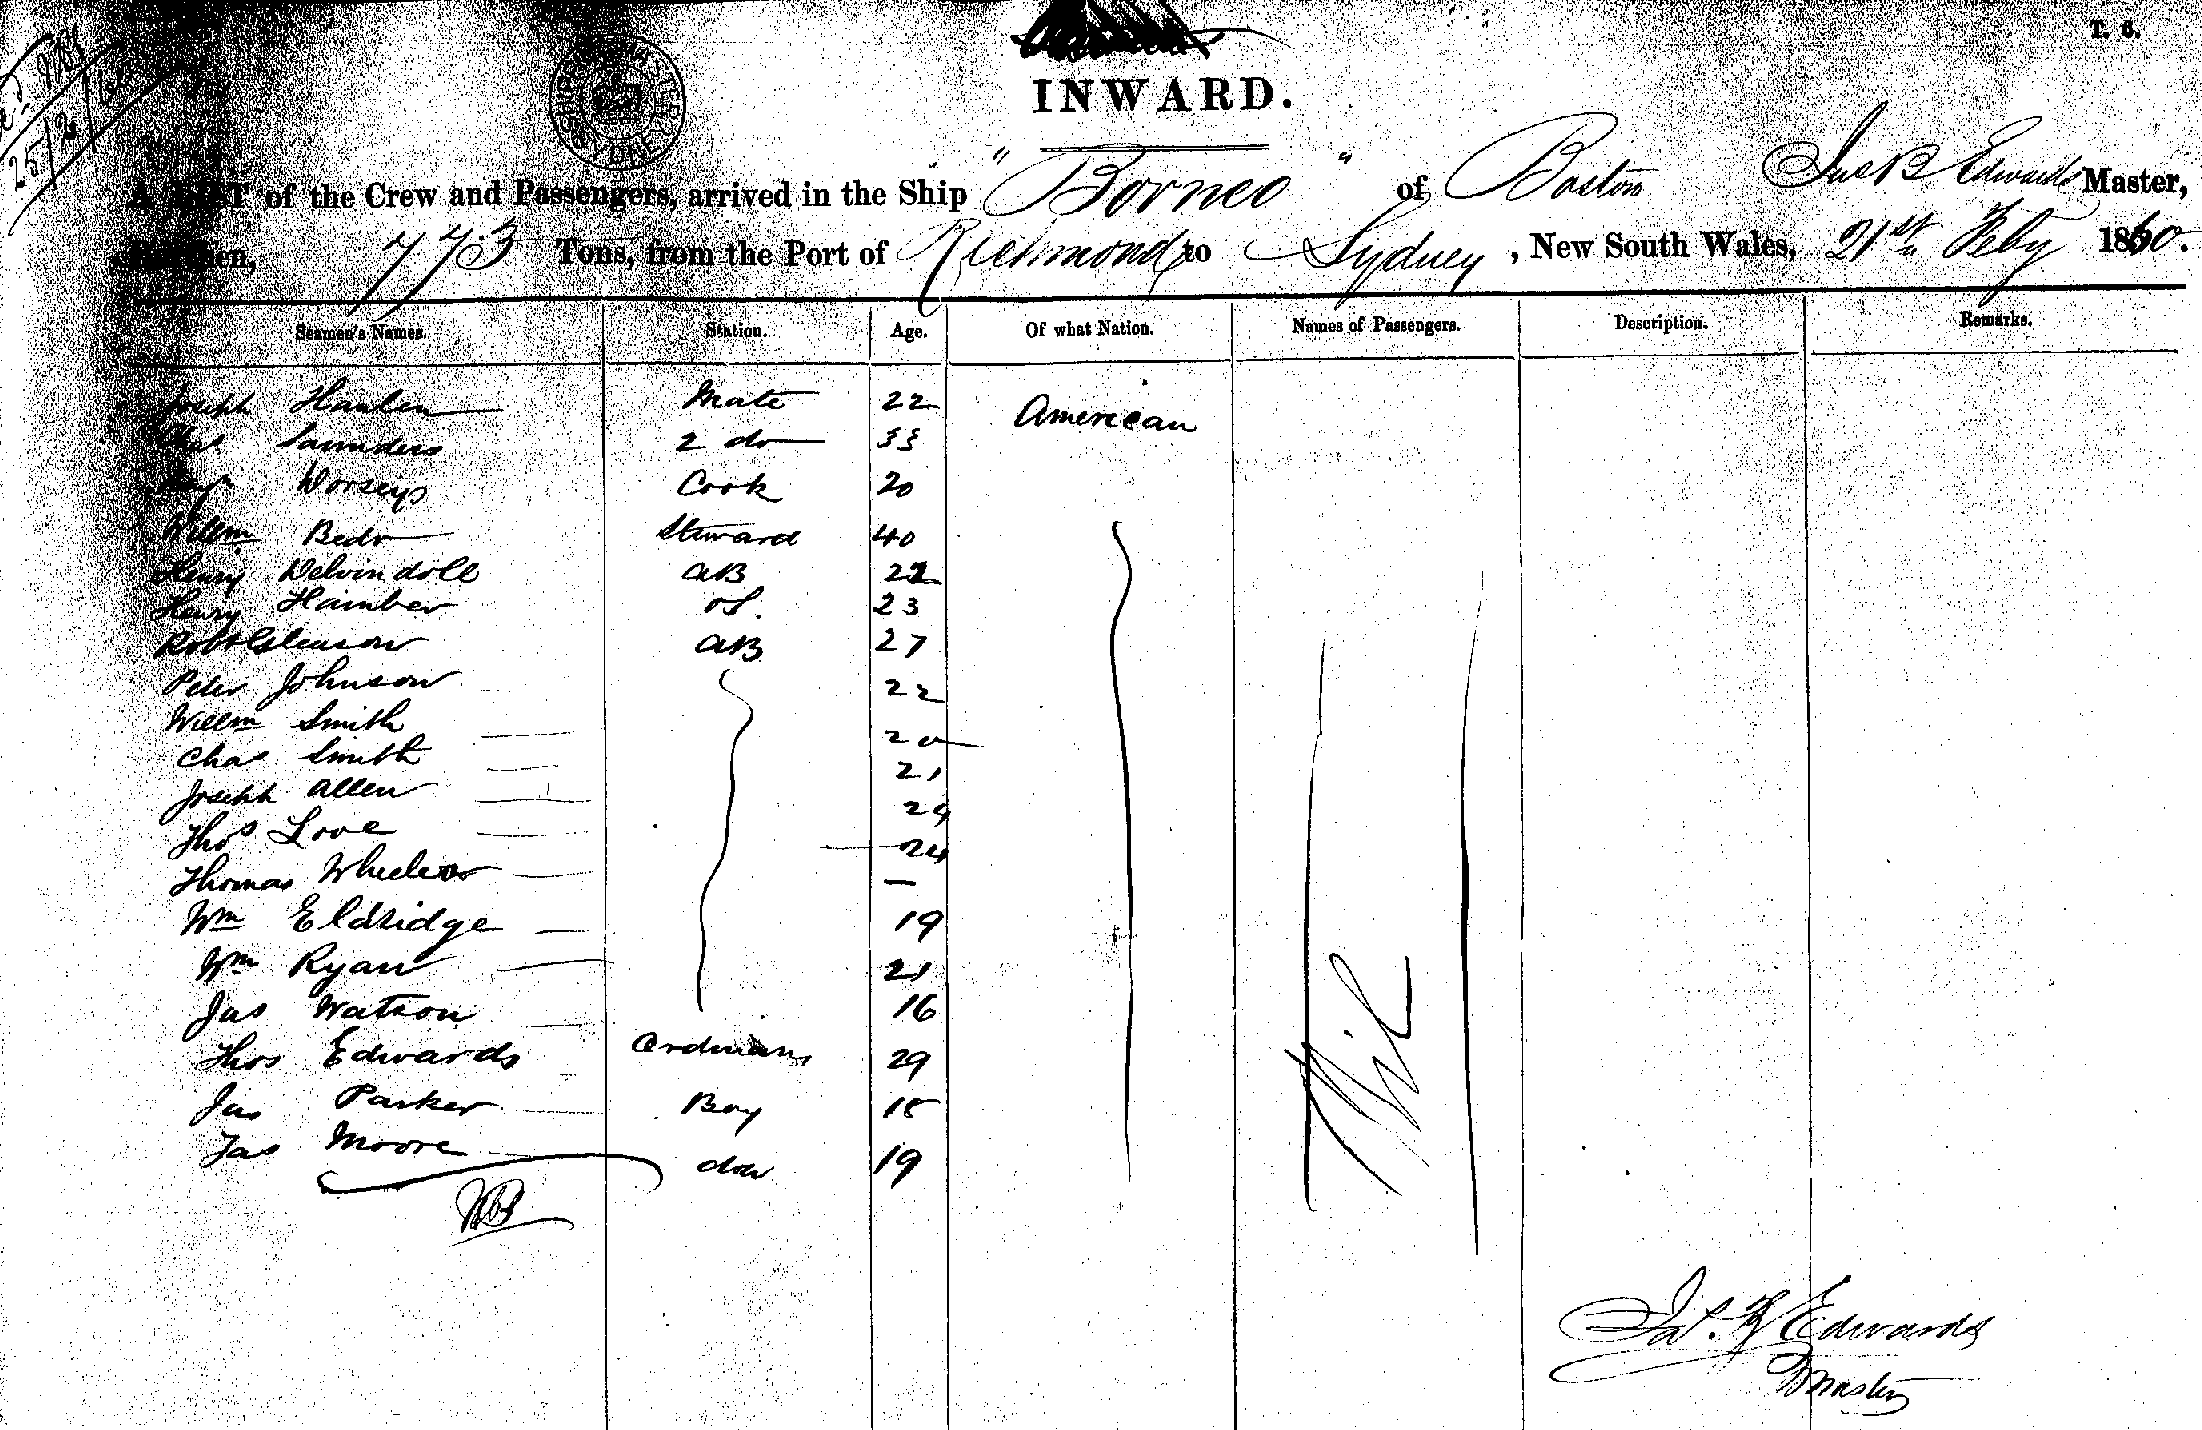 T. 6.
INWARD.
A LIST of the Crew and Passengers, arrived in the Ship "Borneo" of Boston Jas B Edwards Master,
Burthen, 773 Tons, from the Port of Richmond to Sydney, New South Wales, 21st Feby 1860.
Seamen's Names. Station. Age. Of what Nation. Names of Passengers. Description. Remarks.
Joseph Hanlen Mate 22 American
Saunders 2 do 33
Dorseys Cook 20
Willm Bedr Steward 40
Henry Delvindoll AB 22
Henry Hamber OS. 23
Robt Gleason AB 27
Peter Johnson 22
Willm Smith 20
Chas Smith 21
Joseph Allen 24
Thos Love 24
Thomas Wheeler —
Wm Eldridge 19
Wm Ryan 21
Jas Watson 16
Thos Edwards Ordinary 29
Jas Parker Boy 18
Jas Moore do 19
Nil
Jas. B Edwards
Master